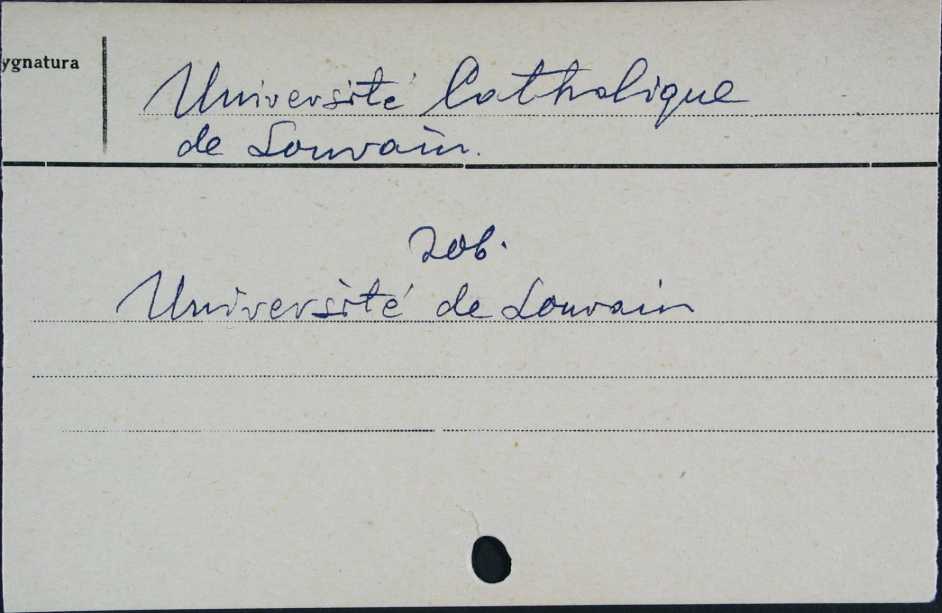 ygnatura
Université Catholique
de Louvain.
zob.
Université de Louvain